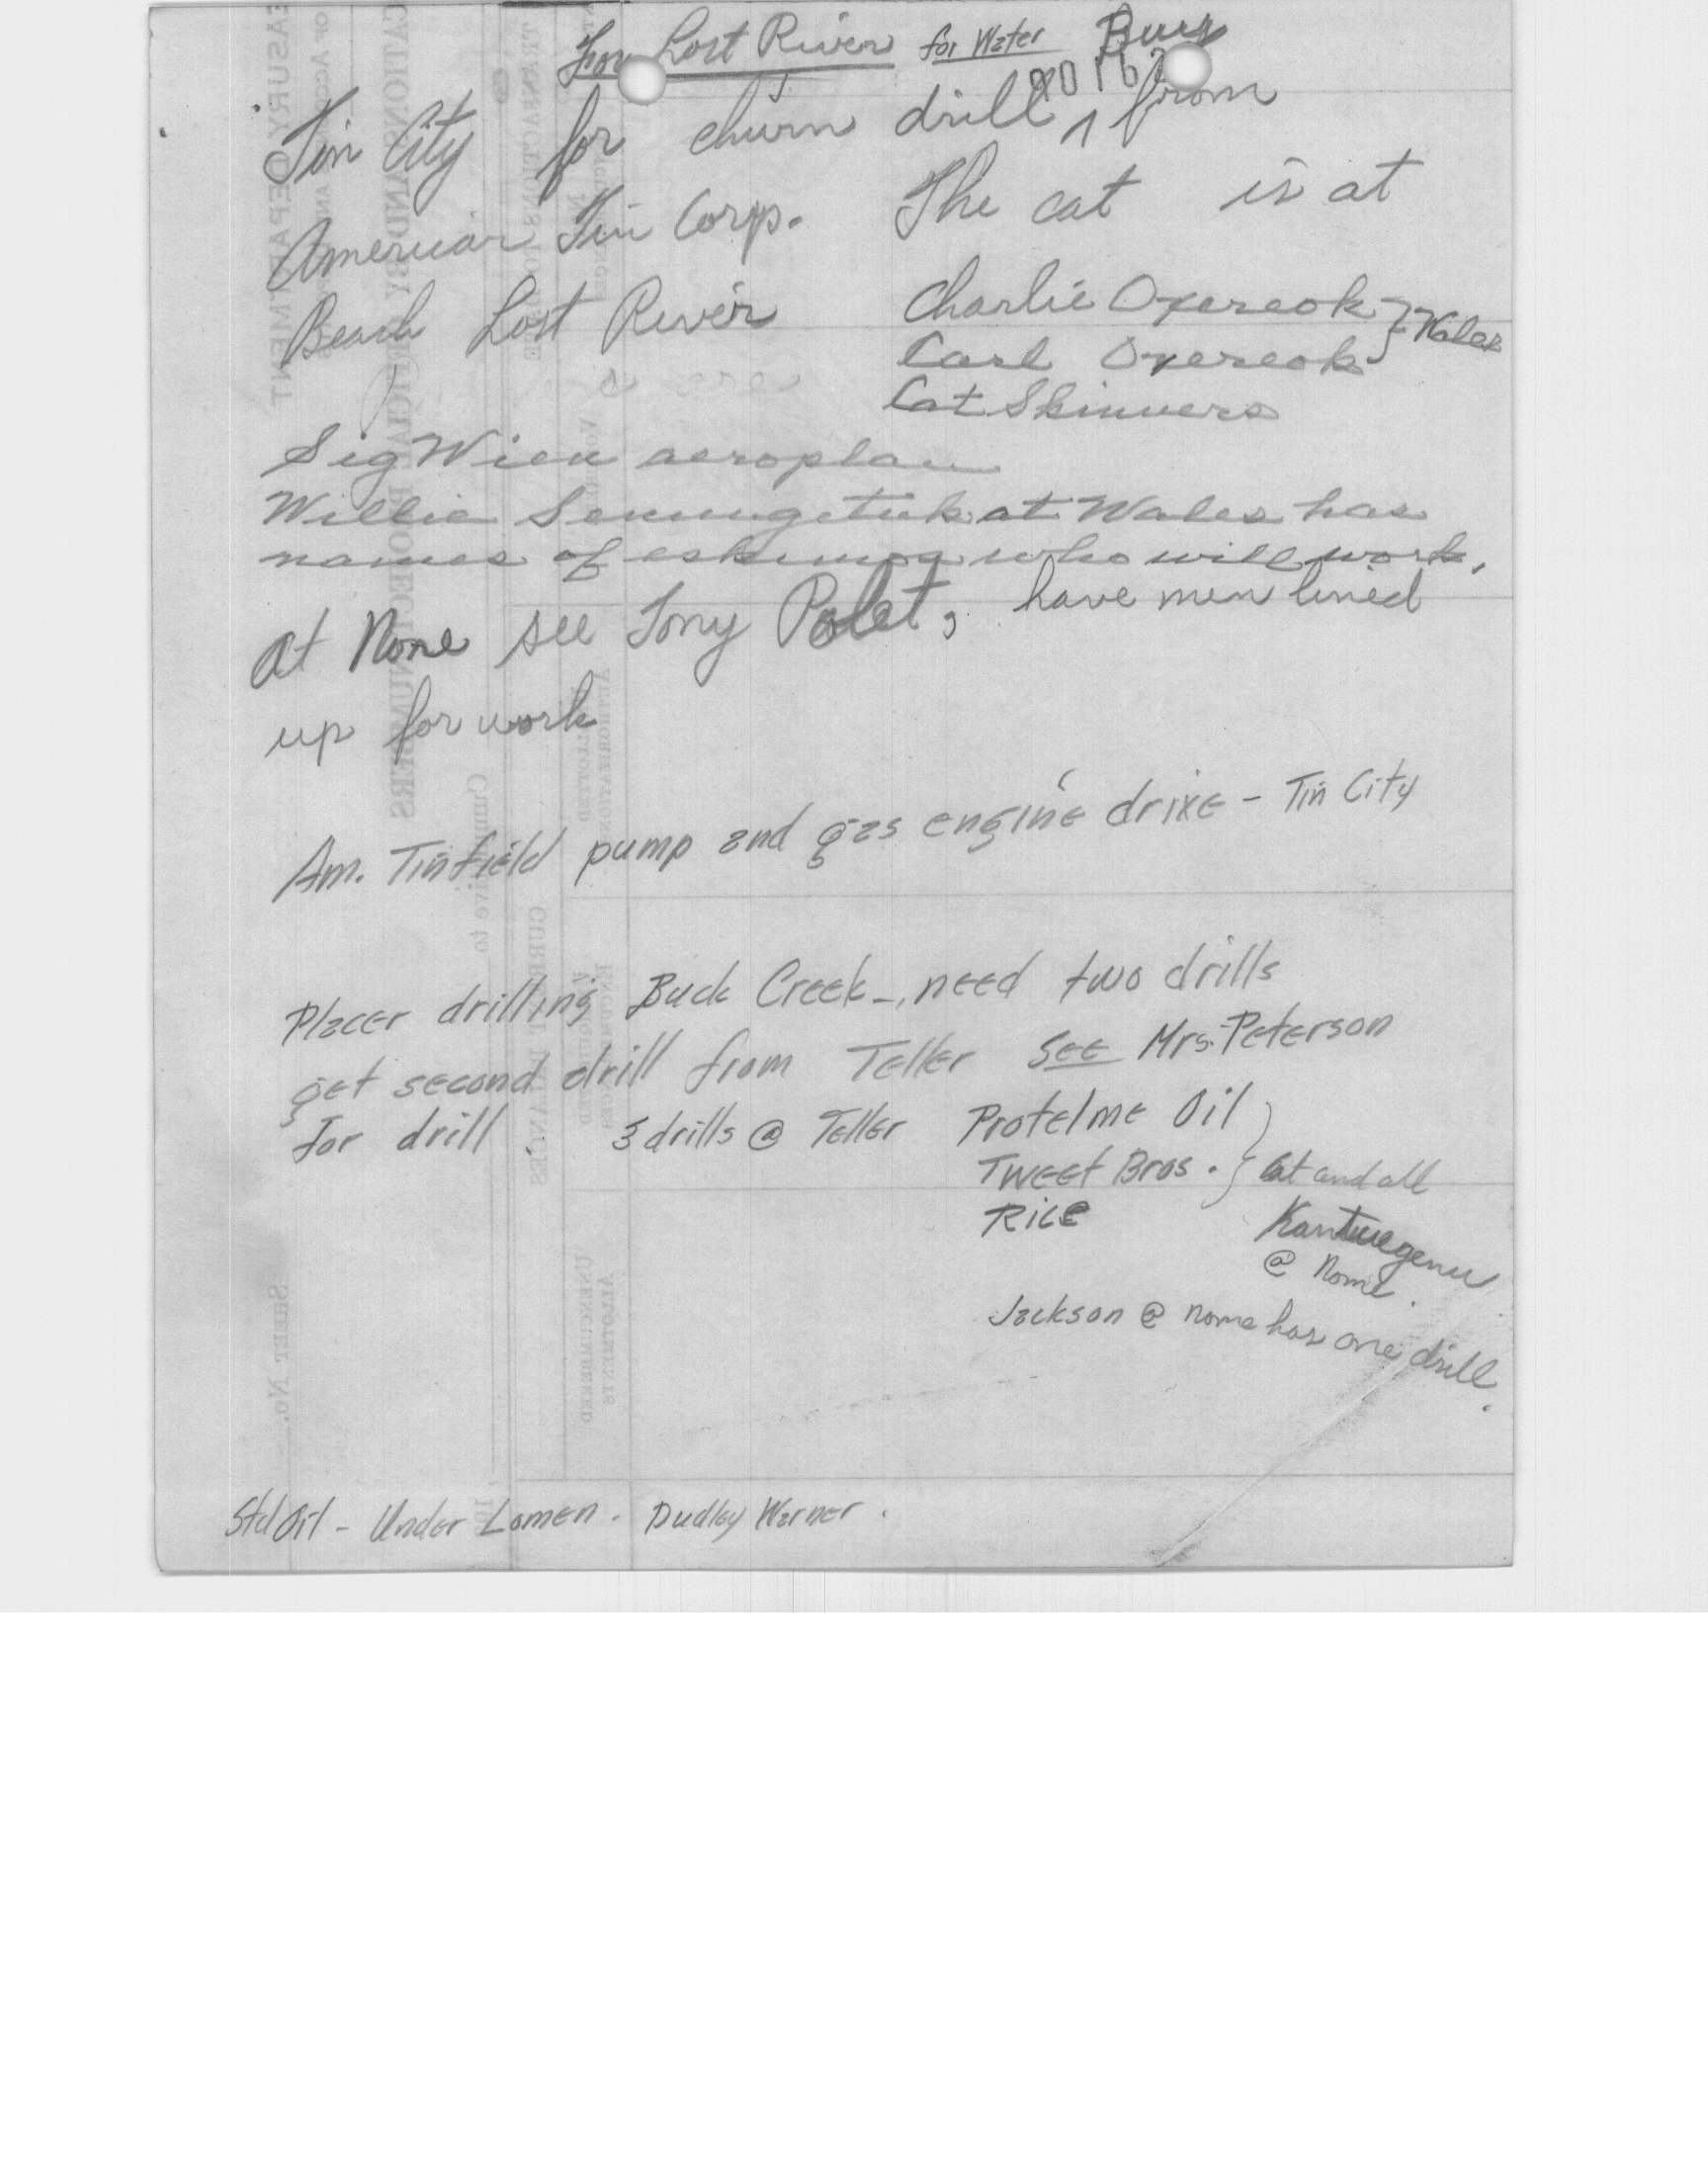 For Lost River for Water
Tin City for churn drill, from
American Tin Corp. The cat is at
Beach Lost River
Charlie Oxereok } Wales
Carl Oxereok
Cat Skinners
Sig Wien aeroplane
Willie Senungetuk at Wales has
names of eskimos who will work.
At Nome see Tony Polet, have men lined
up for work
Am. Tinfield pump and gas engine drive - Tin City
Placer drilling Buck Creek -, need two drills
get second drill from Teller See Mrs. Peterson
for drill. 3 drills @ Teller
Oil
Tweet Bros. } Cat and all
Rice
@ Nome.
Jackson @ Nome has one drill.
Std Oil - Under Lomen. Dudley Warner.